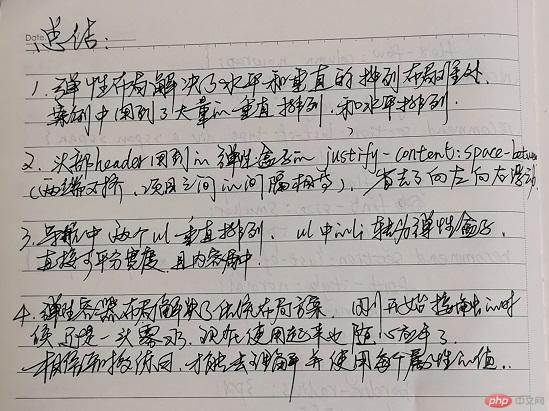 Date.
总结:
1. 弹性布局解决了水平和垂直的排列布局难处.
案例中用到了大量的垂直排列.和水平排列.
2. 头部header用到的弹性盒子的 justify-content:space-between
(两端对齐,项目之间的间隔相等). 省去了向左向右浮动.
3. 导航中两个ul垂直排列. ul中的li转为弹性盒子.
直接平分宽度,且内容居中.
4. 弹性容器布局解决了传统布局方案. 刚开始接触的时
候还是一头雾水,现在使用起来也随心应手了.
相信到多练习,才能去理解并使用每个属性的值.
php 中文网